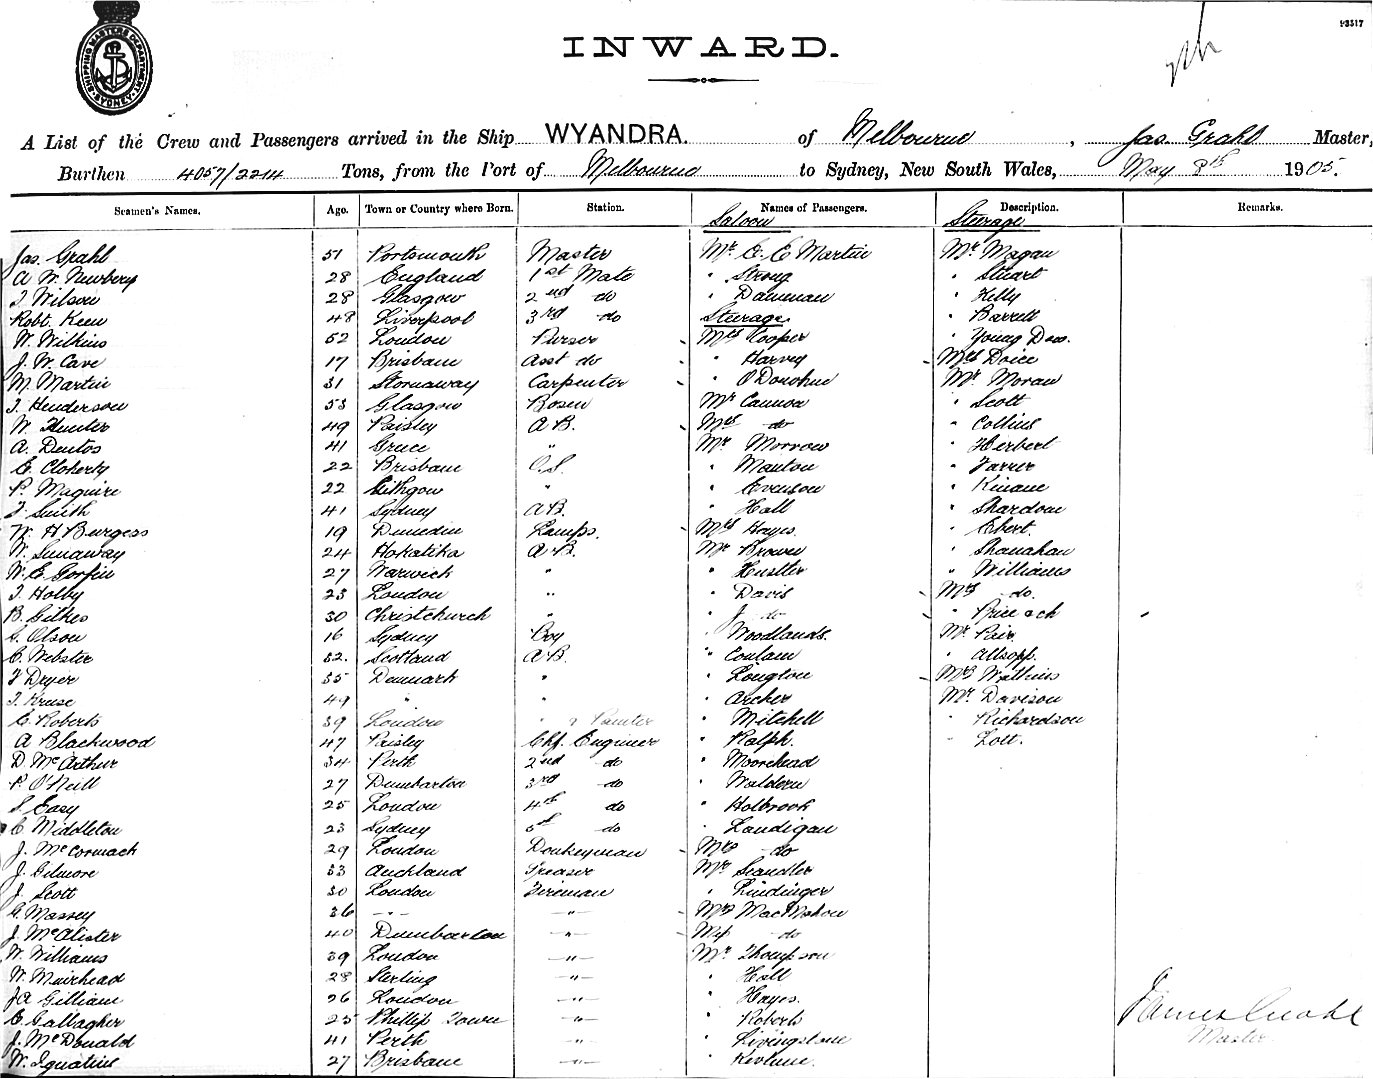 SHIPPING MASTERS DEPARTMENT SYDNEY
INWARD.
A List of the Crew and Passengers arrived in the Ship WYANDRA. of Melbourne, Jas. Grahl Master,
Burthen 4057/2214 Tons, from the Port of Melbourne to Sydney, New South Wales, May 8th 1905.
Seamen's Names. Age. Town or Country where Born. Station. Names of Passengers. Description. Remarks.
Saloon Steerage
Jas. Grahl 51 Portsmouth Master Mr. C. E Martin Mr. Magan
A W. Newbery 28 England 1st Mate " Strong " Stuart
J Wilson 28 Glasgow 2nd do " Damman " Kelly
Robt. Keen 48 Liverpool 3rd do Steerage " Barrett
W. Wilkins 52 London Purser Mrs Cooper " Young Dew.
J. W. Cave 17 Brisbane Asst do " Harvey Mrs Doice
M Martin 31 Stornaway Carpenter " O'Donohue Mr. Moran
J. Henderson 53 Glasgow Bosen Mr Cannon " Scott
W. Hunter 49 Paisley A B. Mrs do " Collins
A. Dentos 41 Greece " Mr. Morrow " Herbert
C. Cloherty 22 Brisbane O.S. " Manton " Farrer
P. Maguire 22 Lithgow " " Evenson " Kinane
J. Smith 41 Sydney A B. " Hall " Shardon
W. H Burgess 19 Dunedin Lamps. Mrs Hayes. " Ebert.
W. Sunaway 24 Hokatika A B. Mr Brown " Shanahan
W. E Gorfin 27 Warwick " " Hustler " Williams
J. Holby 23 London " " Davis Mrs do.
B. Gilkes 30 Christchurch " " J. do " Price & ch
G. Olson 16 Sydney Boy " Woodlands. Mr. Pair.
C. Webster 32. Scotland A B. " Coulam " Allsopp.
F Dryer 35 Denmark " " Longton Mrs Watkins
J. Kruse 49 " " " Archer Mr. Davison
C. Roberts 39 London " & Painter " Mitchell " Richardson
A Blackwood 47 Paisley Chf. Engineer " Ralph. " Lott.
D. McArthur 34 Perth 2nd do " Moorehead
P. O'Neill 27 Dumbarton 3rd do " Waldern
S. Easy 25 London 4th do " Holbrook
C. Middleton 23 Sydney 5th do " Landigan
J. McCormack 29 London Donkeyman Mrs do
J. Gilmore 33 Auckland Greaser Mr. Scandler
J. Scott 30 London Fireman " Lindinger
G. Massey 36 -"- -"- Mrs MacMahon
J. McAlister 40 Dumbarton -"- Miss do
W. Williams 39 London -"- Mr. Thompson
W. Muirhead 28 Sterling -"- " Hall
Ja Gilliam 26 London -"- " Hayes.
C. Gallagher 25 Phillip Town -"- " Roberts
J. McDonald 41 Perth -"- " Livingstone
W. Ignatius 27 Brisbane -"-
James Grahl
Master